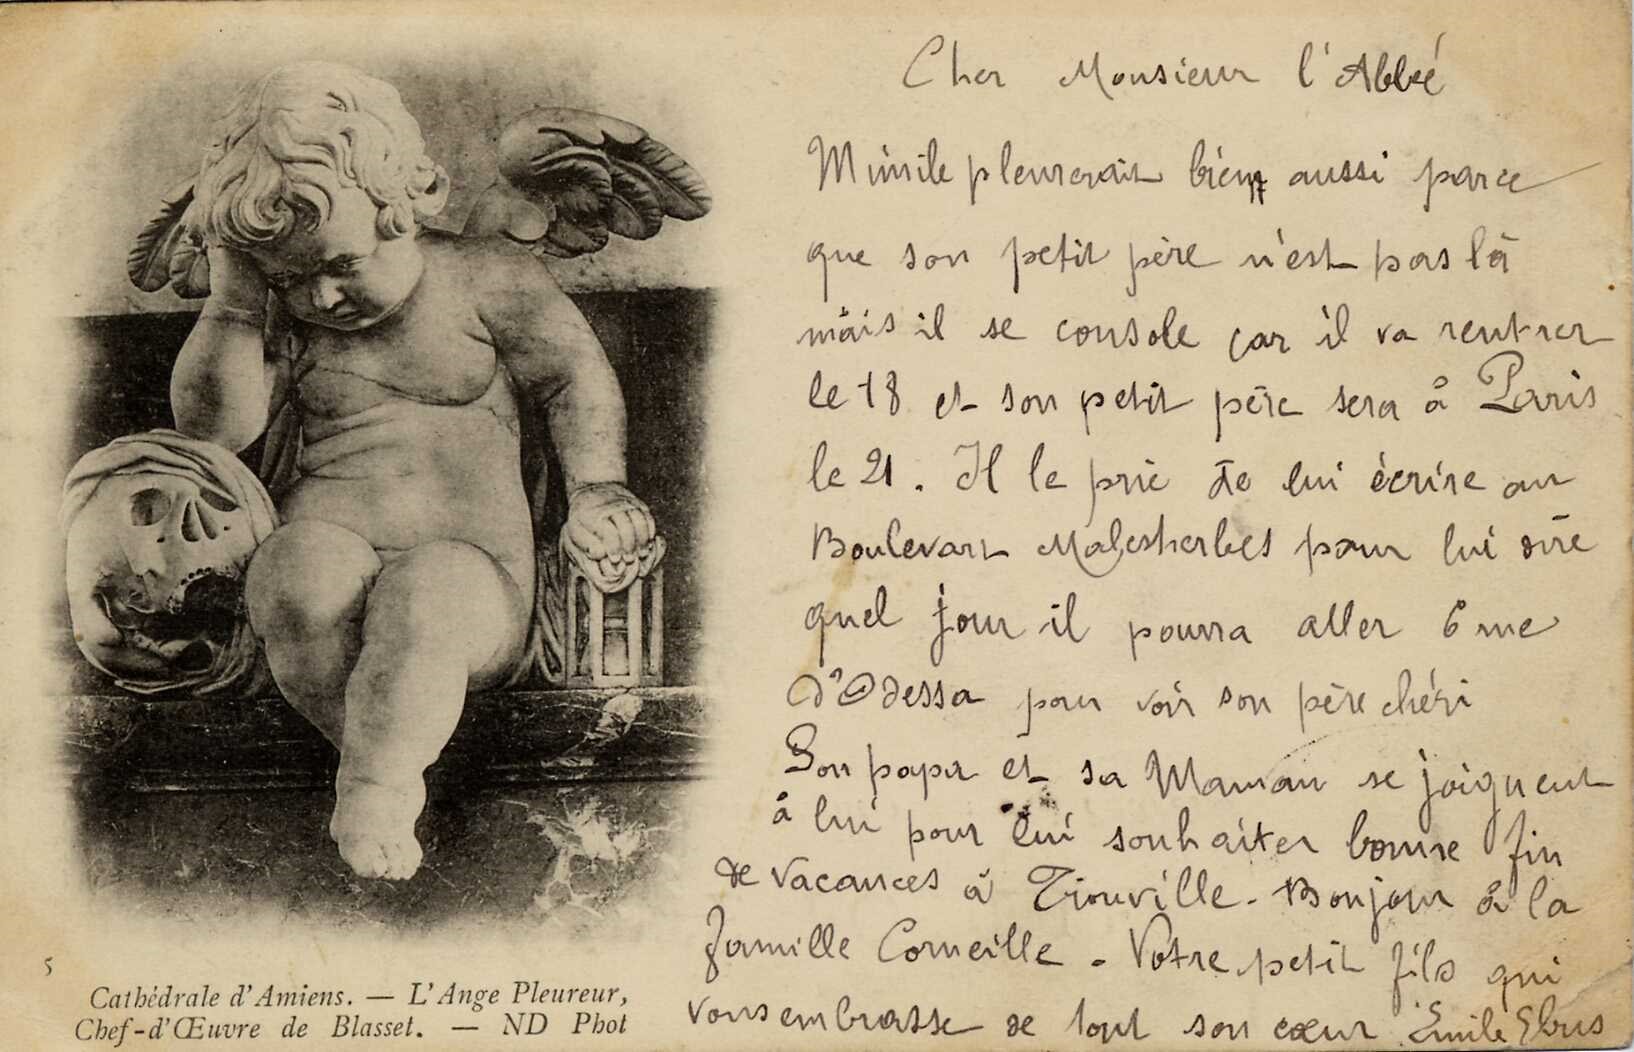 Cher Monsieur l'Abbé
Mimile pleurerait bien aussi parce
que son petit père n'est pas là
mais il se console car il va rentrer
le 18 et son petit père sera à Paris
le 21. Il le prie de lui écrire au
Boulevart Malesherbes pour lui dire
quel jour il pourra aller 6 rue
d'Odessa pour voir son père chéri
Son papa et sa Maman se joignent
à lui pour lui souhaiter bonne fin
de vacances à Trouville. Bonjour à la
famille Corneille. Votre petit fils qui
vous embrasse de tout son cœur Emile
5
Cathédrale d'Amiens. — L'Ange Pleureur,
Chef-d'Œuvre de Blasset. — ND Phot